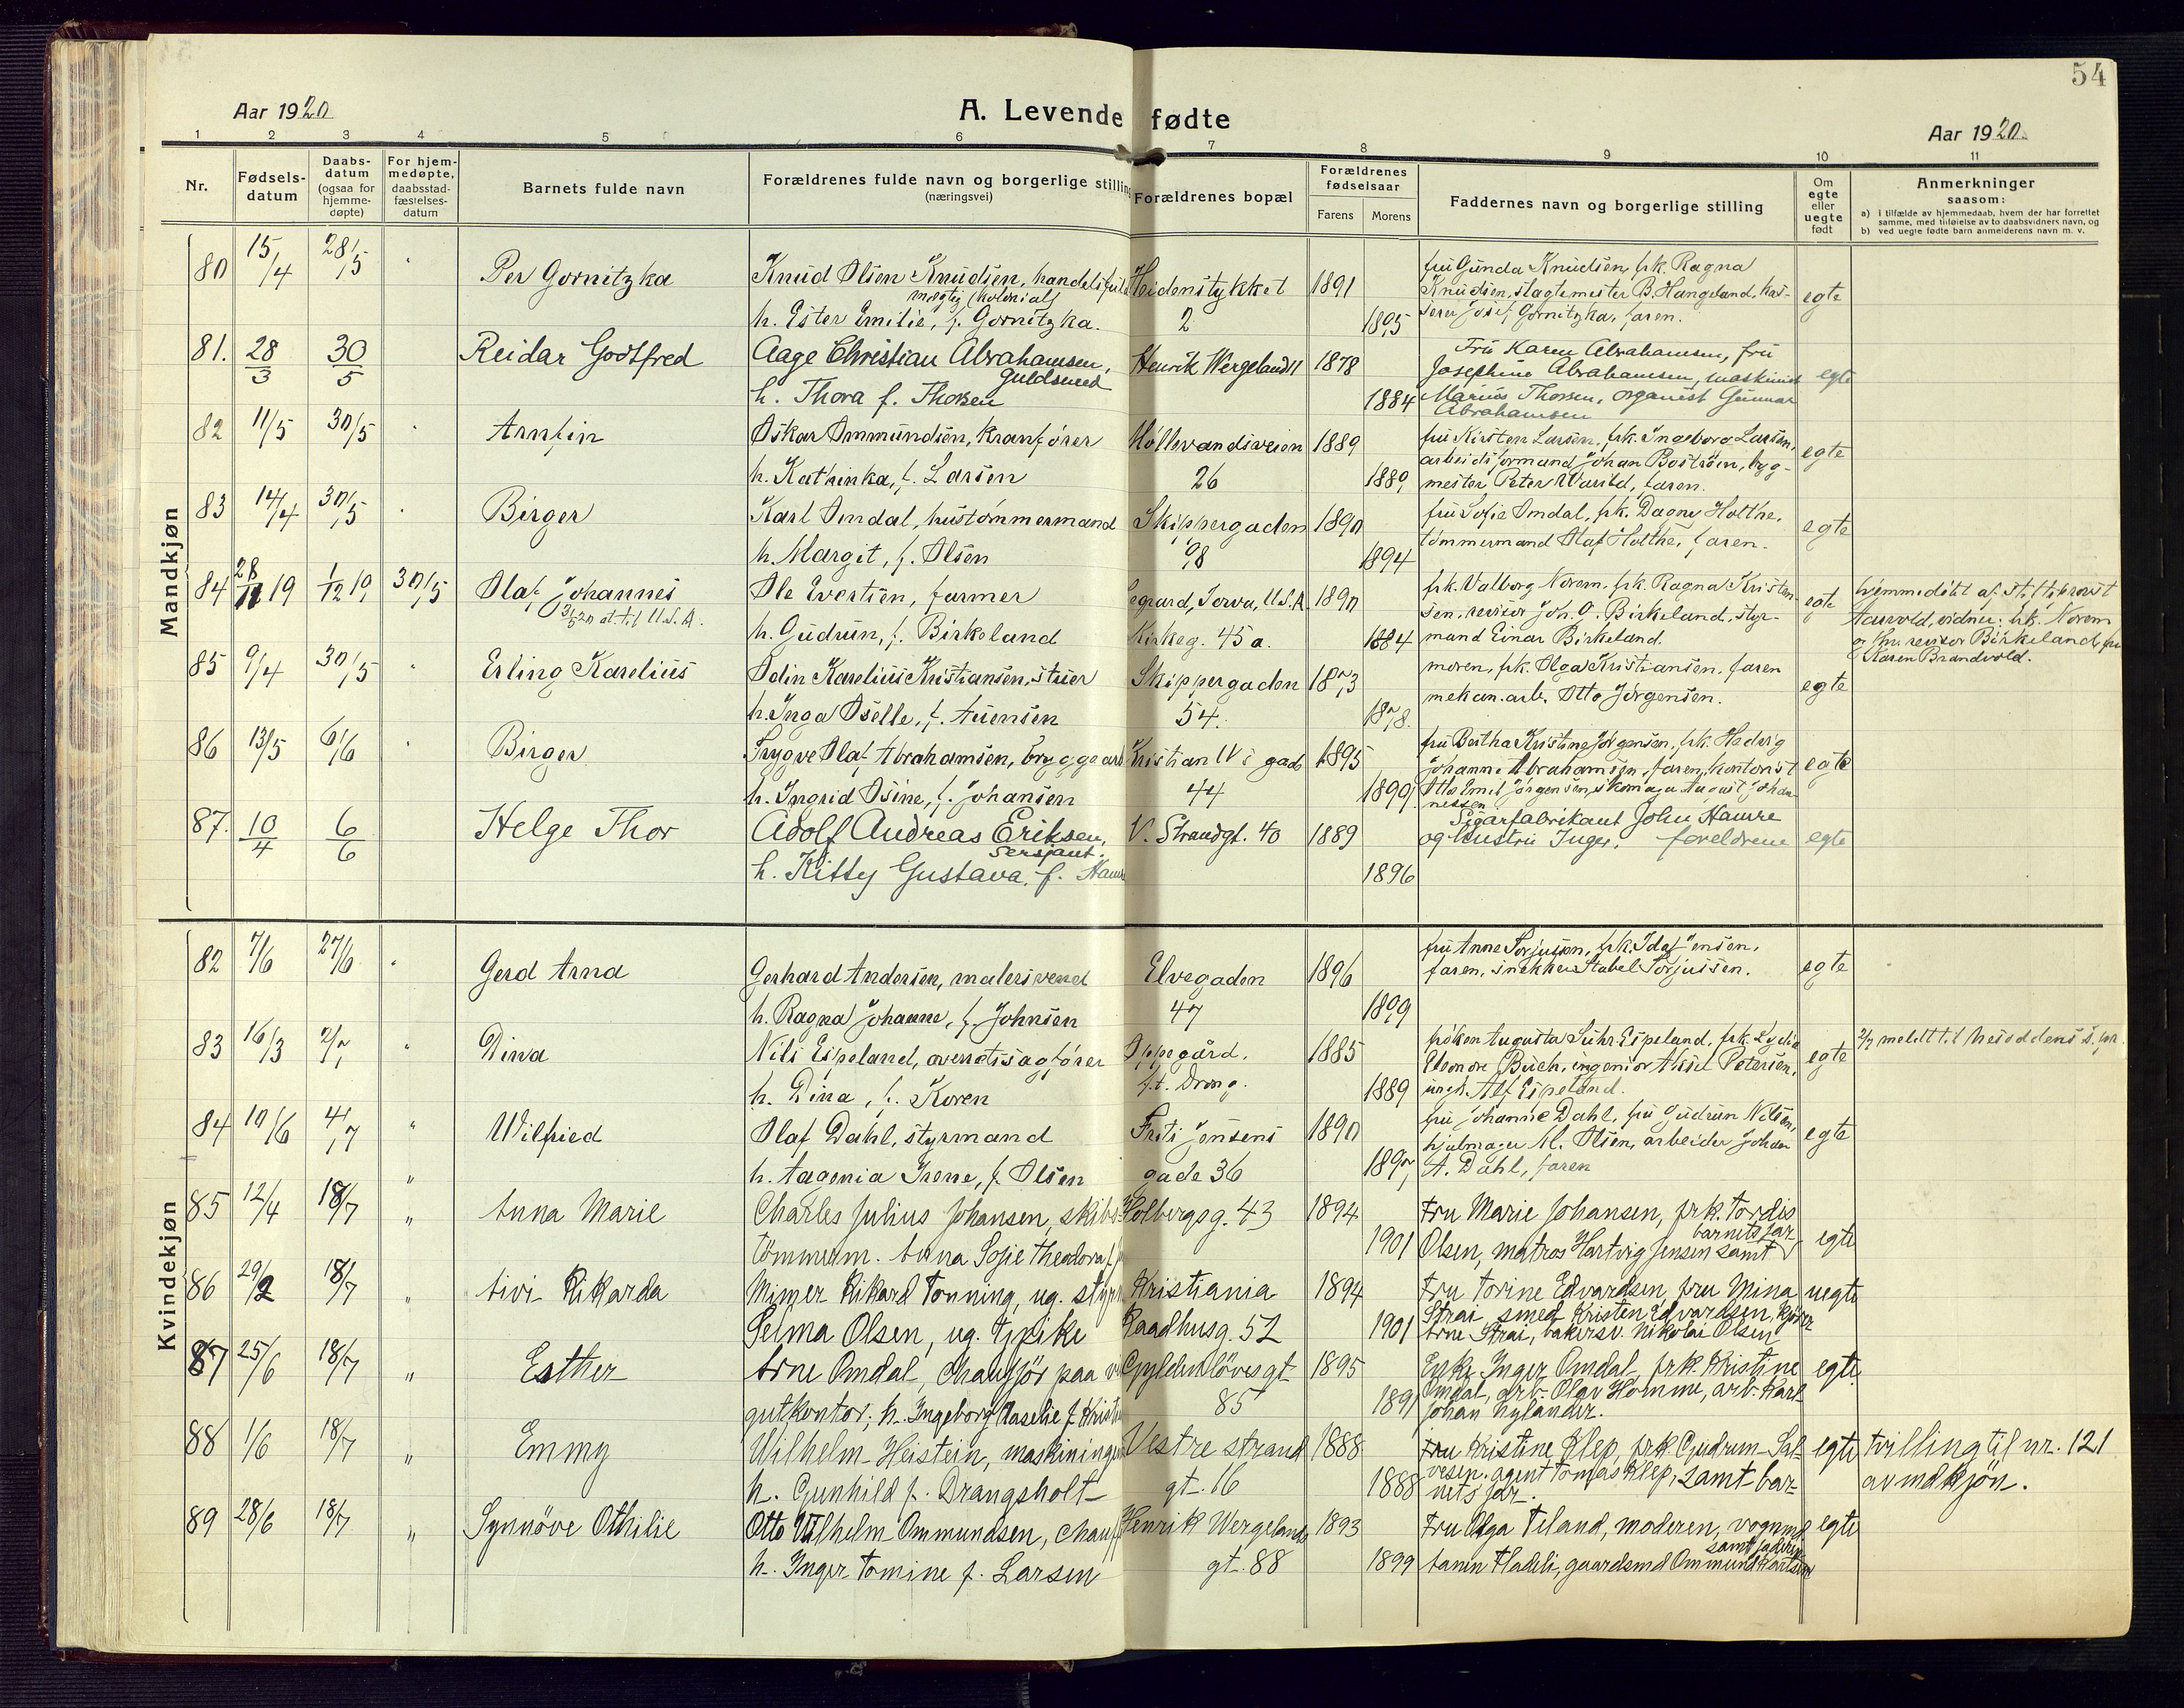 54
Aar 1920
A. Levende fødte
Aar 1920
1 2 3 4 5 6 7 8 9 10 11
Nr.
Fødsels-
datum
Daabs-
datum
(ogsaa for
hjemme-
døpte)
For hjem-
medøpte,
daabsstad-
fæstelses-
datum
Barnets fulde navn
Forældrenes fulde navn og borgerlige stilling
(næringsvei)
Forældrenes bopæl
Forældrenes
fødselsaar
Farens Morens
Faddernes navn og borgerlige stilling
Om
egte
eller
uegte
født
Anmerkninger
saasom:
a) I tilfælde av hjemmedaab, hvem der har forrettet
samme, med tilføielse av to daabsvidners navn, og
b) ved uegte fødte barn anmelderens navn m. v.
Mandkjøn
80 15/4 28/5 Per Gornitzka Knud Olsen Knudsen, handelsful
mægtig (kolonial) Heidenstykket 1891
h. Ester Emilie, f. Gornitzka. 2 1895
fru Gunda Knudsen, frk. Ragna
Knudsen, slagtemester B. Haugeland, kas-
serer Josef Gornitzka, faren. egte
81. 28/3 30/5 Reidar Godtfred Aage Christian Abrahamsen,
Guldsmed Henrik Wergeland 11 1878
h. Thora f. Thorsen 1884
Fru Karen Abrahamsen, fru
Josephine Abrahamsen, maskinist
Marius Thorsen, organist Gunnar
Abrahamsen egte
82 11/5 30/5 Arnfin Oskar Ommundsen, kranfører Møllevandsveien 1889
h. Kathinka, f. Larsen 26 1889
fru Kirsten Larsen, frk. Ingeborg Larsen,
arbeidsformand Johan Boström, byg-
mester Peter Warild, faren. egte
83 14/4 30/5 Birger Karl Omdal, hustømmermand Skippergaden 1890
h. Margit, f. Olsen 98 1894
fru Sofie Omdal, frk. Dagny Holthe,
tømmermand Olaf Holthe, faren. egte
84 28/11 19 1/12 19 30/5 Olaf Johannes Ole Evertsen, farmer 1890
3/5 20 att. til U.S.A.
h. Gudrun, f. Birkeland Kirkeg. 45a. 1884
frk. Valborg Norem, frk. Ragna Kristen-
sen, revisor Joh. O. Birkeland, styr-
mand Einar Birkeland. egte
hjemmedøbt af stiftsprovst
Aarvold, vidner: frk. Norem
og fru revisor Birkeland, fru
Karen Brandvold.
85 9/4 30/5 Erling Karelius Odin Karelius Kristiansen, stuer Skippergaden 1873
h. Inga Oselle, f. Auensen 54. 1878.
moren, frk. Olga Kristiansen, faren
mekan. arb. Otto Jørgensen. egte
86 13/5 6/6 Birger Trygve Olaf Abrahamsen, bryggearb Kristian IVs gade 1895
h. Ingrid Osine, f. Johansen 44 1899
fru Bertha Kristine Jørgensen, frk. Hedvig
Johanne Abrahamsen, faren, kontorist
Otto Emil Jørgensen, skomager August Johan-
nessen egte
87. 10/4 6/6 Helge Thor Adolf Andreas Eriksen,
Sersjant. V. Strandgt. 40 1889
h. Kitty Gustava, f. Hamre 1896
Sigarfabrikant John Hamre
og hustru Inger, foreldrene egte
Kvindekjøn
82 7/6 27/6 Gerd Arna Gerhard Andersen, malersvend Elvegaden 1896
h. Ragna Johanne, f. Johnsen 47 1899
fru Anne Torjusen, frk. Ida Jensen,
faren, snekker Stabel Torjussen. egte
83 16/3 2/7 Dina Nils Espeland, overretssagfører Oppegård, 1885
h. Dina, f. Koren p.t. 1889
frøken Augusta Suhr. Espeland, frk. Lydia
Eleonore Buch, ingeniør Aksel Petersen,
ungk. Alf Espeland. egte
2/7 meldt til Nesoddens s. pr.
84 10/6 4/7 " Wilfried Olaf Dahl, styrmand Frits Jensens 1890
h. Aagenia Irene, f. Olsen gade 36 1897
fru Johanne Dahl, fru Gudrun Nilsen,
hjulmager M. Olsen, arbeider Johan
A. Dahl, faren egte
85 12/4 18/7 " Anna Marie Charles Julius Johansen, skibs- Holbergsg. 43 1894
tömmerm. Anna Sofie Theodora f. 1901
Fru Marie Johansen, frk. Tordis
Olsen, matros Hartvig Jensen samt barnets far egte
86 29/2 18/7 " Livi Rikarda Mimer Rikard Tonning, ug. styrm Kristiania 1894
Selma Olsen, ug. tjpike Raadhusg. 52 1901
Fru Torine Edvardsen, fru Mina
Strai smed Kristen Edvardsen, kjører
Arne Strai, bakersv. Nikolai Olsen uegte
87 25/6 18/7 " Esther Arne Omdal, chauffør paa vi Gyldenløves gt 1895
gutkontor; h. Ingeborg Aaselie f. Kristi 85 1891
Enke Inger Omdal, frk. Kristine
Omdal, arb. Olav Homme, arb. Karl
Johan Nylander. egte.
88 1/6 18/7 " Emmy Wilhelm Heistein, maskiningen Vestre strand 1888
h. Gunhild f. Drangsholt gt. 16 1888
Fru Kristine Klep, frk Gudrum Sal-
vesen. agent Tomas Klep, samt bar-
nets far. egte
tvilling til nr. 121
av mdkjøn.
89 28/6 18/7 " Synnöve Othilie Otto Vilhelm Ommundsen, chauff Henrik Wergelands 1893
h. Inger Tomine f. Larsen gt. 88 1899
Fru Olga Teland, moderen, vognmd
samt faderen
gaardsmd Ommund egte